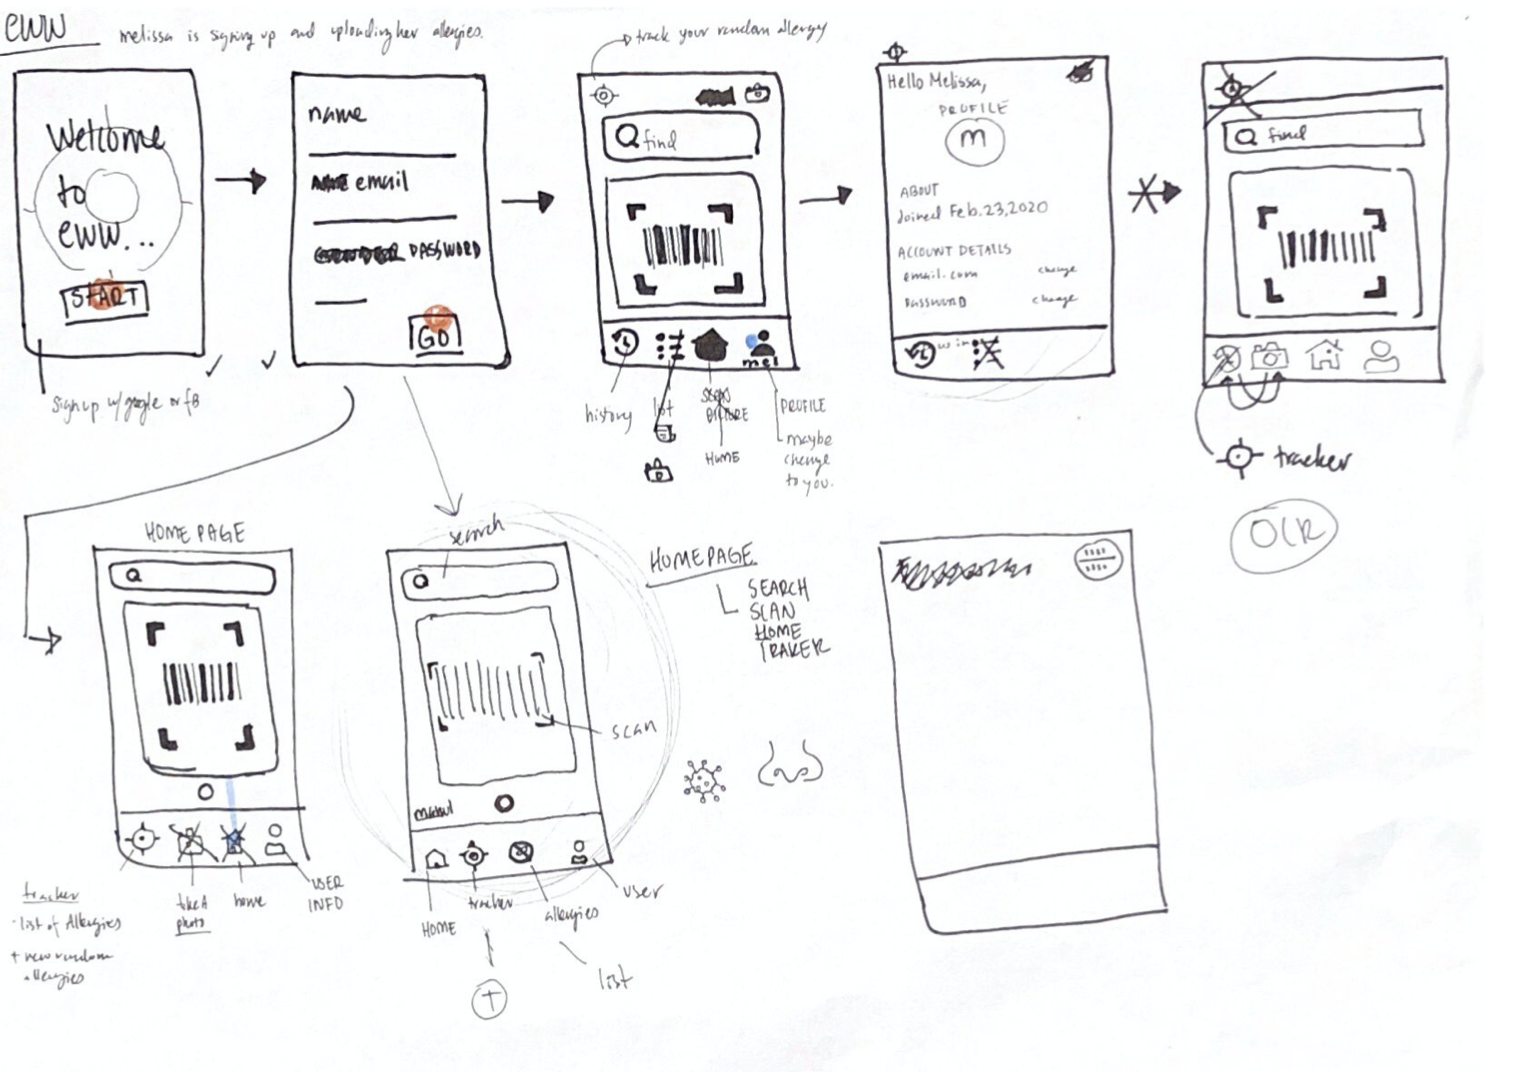 eww
melissa is signing up and uploading her allergies.
track your random allergy
Welcome
to
eww...
START
sign up w/ google or fB
name
email
PASSWORD
GO
find
me!
history
list
PICTURE
HOME
PROFILE
maybe
change
to you.
Hello Melissa,
PROFILE
M
ABOUT
Joined Feb. 23, 2020
ACCOUNT DETAILS
email.com change
PASSWORD change
find
tracker
OCR
HOME PAGE
tracker
- list of Allergies
+ new random
allergies
take A
photo
home
USER
INFO
search
scan
HOME
tracker
allergies
user
list
+
HOMEPAGE
SEARCH
SCAN
HOME
TRAKER